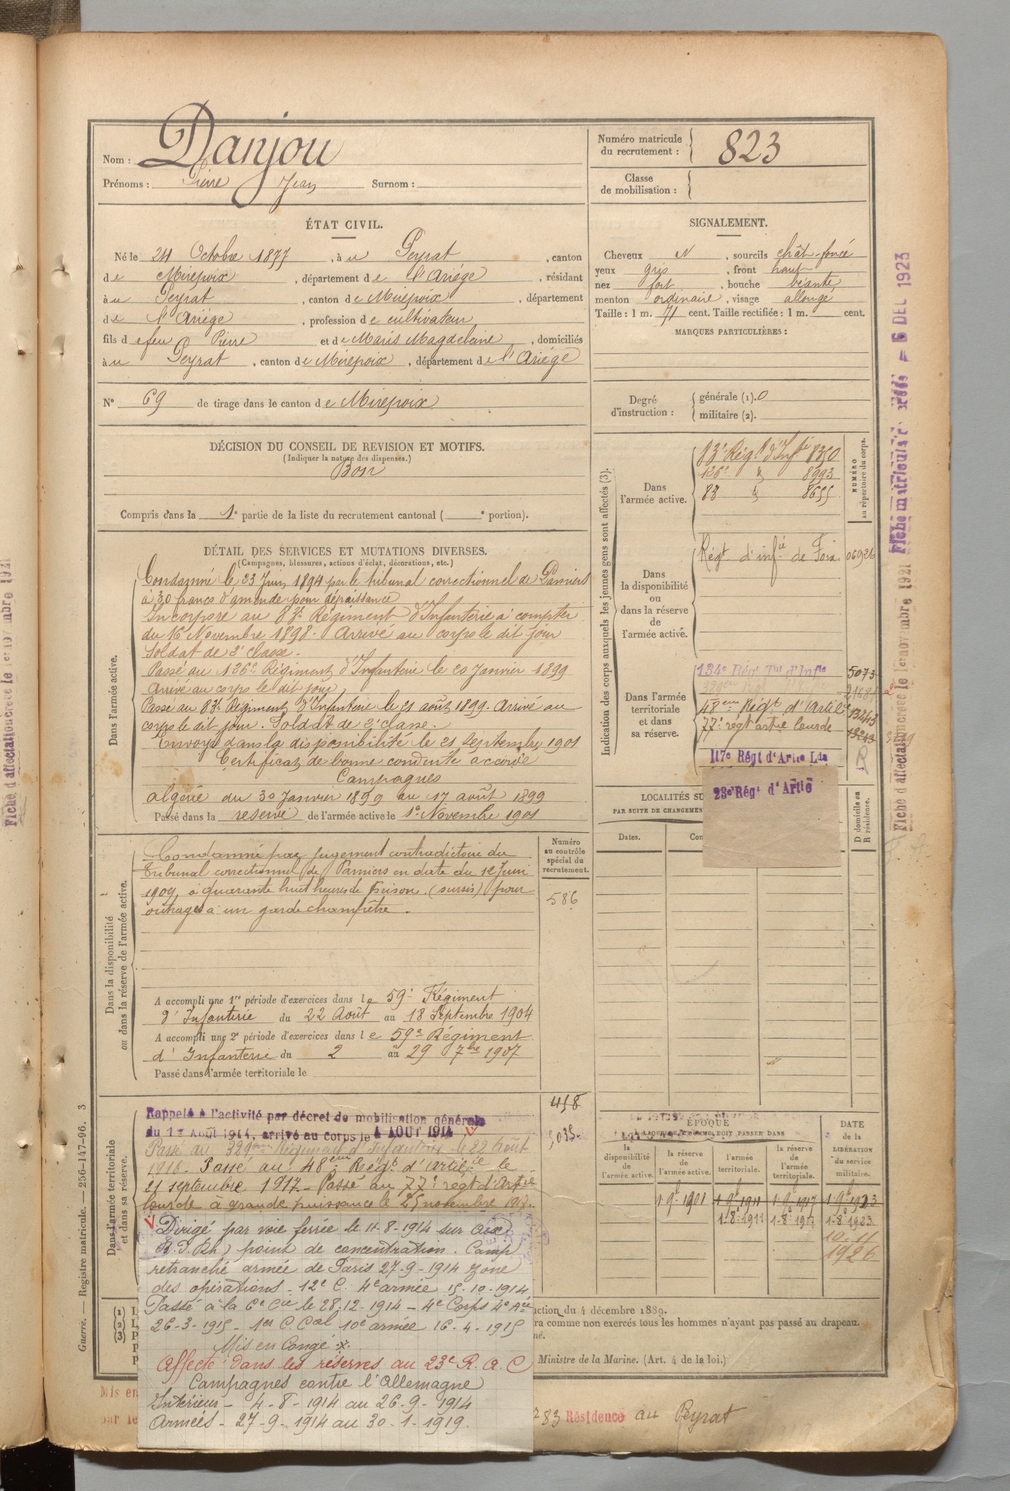 Nom : Danjou
Prénoms : Pierre Jean Surnom :
Numéro matricule
du recrutement : 823
Classe
de mobilisation :
ÉTAT CIVIL.
Né le 24 Octobre 1877, à u Peyrat, canton
d e Mirepoix, département d e l'Ariège, résidant
à u Peyrat, canton d e Mirepoix, département
d e l'Ariège, profession d e cultivateur
fils d e feu Pierre et d e Maris Magdeleine, domiciliés
à u Peyrat, canton d e Mirepoix, département d e l'Ariège
N° 69 de tirage dans le canton d e Mirepoix
SIGNALEMENT.
Cheveux N, sourcils chât-foncé
yeux gris, front haut
nez fort, bouche béante
menton ordinaire, visage allongé
Taille : 1 m. 71 cent. Taille rectifiée : 1 m. cent.
MARQUES PARTICULIÈRES :
Degré
d'instruction :
générale (1). 0
militaire (2).
DÉCISION DU CONSEIL DE REVISION ET MOTIFS.
(Indiquer la nature des dispenses.)
Bon
Compris dans la 1e partie de la liste du recrutement cantonal ( e portion).
DÉTAIL DES SERVICES ET MUTATIONS DIVERSES.
(Campagnes, blessures, actions d'éclat, décorations, etc.)
Dans l'armée active.
Condamné le 23 Juin 1894 par le tribunal correctionnel de Pamiers
à 30 francs d'amende pour dépaissance
Incorporé au 83e Régiment d'Infanterie à compter
du 16 Novembre 1898. Arrivé au corps le dit jour
Soldat de 2e classe.
Passé au 126e Régiment d'Infanterie le 20 Janvier 1899
Arrivé au corps le dit jour
Passé au 83e Régiment d'Infanterie le 21 août 1899. Arrivé au
corps le dit jour. Soldat de 2e classe.
Envoyé dans la disponibilité le 21 Septembre 1901
Certificat de bonne conduite accordé
Campagnes
Algérie du 30 Janvier 1899 au 17 août 1899
Passé dans la réserve de l'armée active le 1er Novembre 1901
Indication des corps auxquels les jeunes gens sont affectés (3).
NUMÉRO
au répertoire du corps.
Dans
l'armée active.
83e Régt d'Infie 8350
126e " 8993
88 " 8655
Dans
la disponibilité
ou
dans la réserve
de
l'armée active.
Régt d'infie de Foix
Dans l'armée
territoriale
et dans
sa réserve.
134e Régt Tal d'Infie 5073
48eme Régt d'Artie
77e régt artie lourde
117e Régt d'Artie Lde
23e Régt d'Artie
LOCALITÉS SU
PAR SUITE DE CHANGEMEN
Dates.
D domicile ou
R résidence.
Dans la disponibilité
ou dans la réserve de l'armée active.
Condamné par jugement contradictoire du
tribunal correctionnel de Pamiers en date du 12 Juin
1909, à quarante huit heures de prison (sursis) pour
outrages à un garde champêtre.
Numéro
au contrôle
spécial du
recrutement.
586
A accompli une 1re période d'exercices dans l e 59e Régiment
d'Infanterie du 22 Août au 18 Septembre 1904
A accompli une 2e période d'exercices dans l e 59e Régiment
d'Infanterie du 2 au 29 7bre 1907
Passé dans l'armée territoriale le
Dans l'armée territoriale
et dans sa réserve.
Rappelé à l'activité par décret de mobilisation générale
du 1er Août 1914, arrivé au corps le 4 AOUT 1914
Passé au 329eme Régiment d'Infanterie le 22 août
1916. Passé au 48eme Régt d'artillie le
21 septembre 1917. Passé au 77e régt d'Artie
lourde à grande puissance le 25 novembre 1917.
Dirigé par voie ferrée le 11-8-1914 sur
point de concentration. Camp
retranché armée de Paris 27-9-1914 zone
des opérations. 12e C. 4e armée 15-10-1914
Passé à la 6e Cie le 28-12-1914 – 4e Corps 4e Aée
26-3-1915 – 1er C Cal 10e armée 16-4-1915
Mis en Congé
Affecté dans les réserves au 23e R.A.C
Campagnes contre l'Allemagne
Intérieur – 4-8-1914 au 26-9-1914
Armées – 27-9-1914 au 30-1-1919.
458
ÉPOQUE
la
disponibilité
de
l'armée active.
la réserve
de
l'armée active.
l'armée
territoriale.
la réserve
de
l'armée
territoriale.
DATE
de la
LIBÉRATION
du service
militaire.
1 9bre 1901 1 9bre 1911 1 9bre 1917 1 9bre 1923
1-8e 1911 1-8e 1917 1-8e 1923
10-11
1926
ction du 4 décembre 1889.
ra comme non exercés tous les hommes n'ayant pas passé au drapeau.
Ministre de la Marine. (Art. 4 de la loi.)
Mis en
783 Résidence au Peyrat
Guerre. — Registre matricule. — 256-147-96. 3
Fiche d'affectation créée le 1er novembre 1921 Fiche matriculaire = 6 DEC 1923